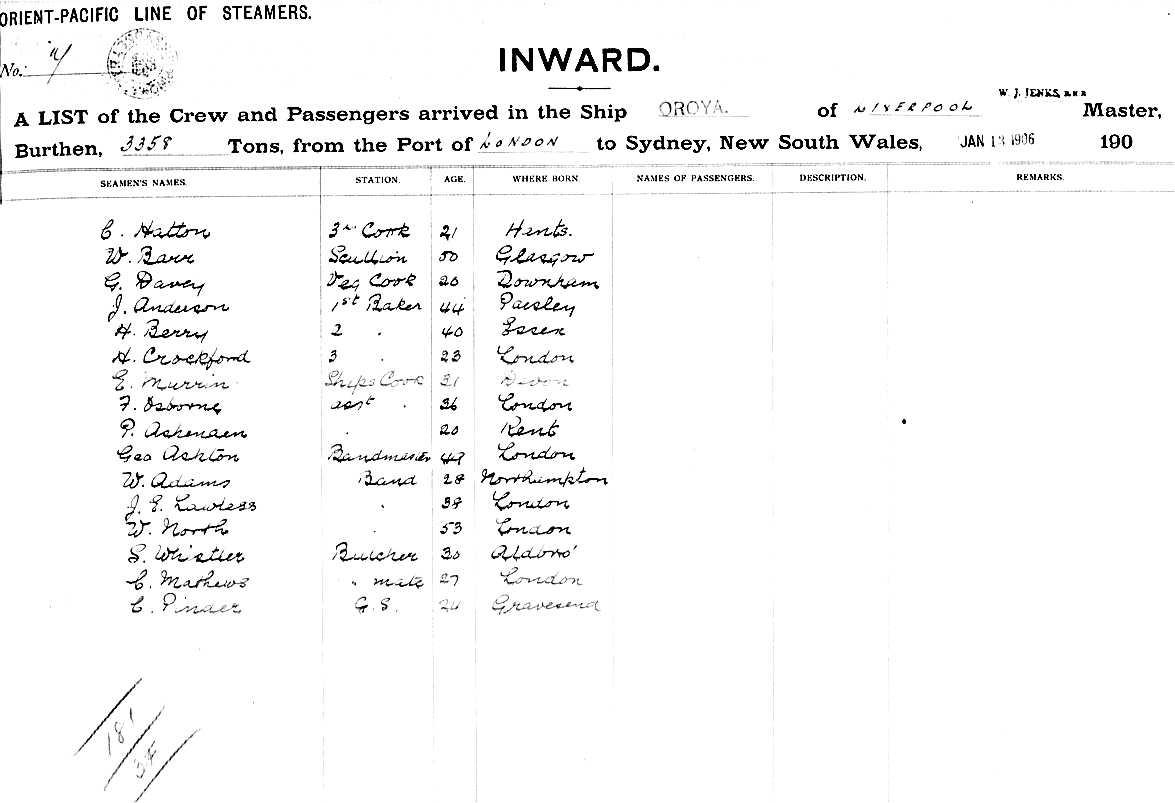 ORIENT-PACIFIC LINE OF STEAMERS.
No.
INWARD.
W. J. JENKS,
A LIST of the Crew and Passengers arrived in the Ship OROYA. of LIVERPOOL Master,
Burthen, 3358 Tons, from the Port of LONDON to Sydney, New South Wales, JAN 13 1906 190
SEAMEN'S NAMES. STATION. AGE. WHERE BORN. NAMES OF PASSENGERS. DESCRIPTION. REMARKS.
C. Hatton 3rd Cook 21 Hants.
W. Barr Scullion 50 Glasgow
G. Davey Veg Cook 20 Downham
J. Anderson 1st Baker 44 Paisley
H. Berry 2 . 40 Essex
H. Crockford 3 . 23 London
E. Murrin Ships Cook 31 Devon
F. Osborne asst . 36 London
P. . 20 Kent
Geo Ashton Bandmaster London
W. Adams Band 28 Northampton
J. E. Lawless . 38 London
W. North . 53 London
S. Whistler Butcher 30 Aldboro'
C. Mathews " mate 27 London
C. Pinder G.S. 24 Gravesend
181